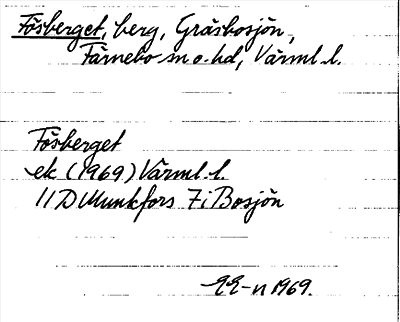 Fösberget, berg, Gräsbosjön,
Färnebo sn o. hd, Värml. l.
Fösberget
ek (1969) Värml. l.
11D Munkfors 7i Bosjön
EE-n 1969.